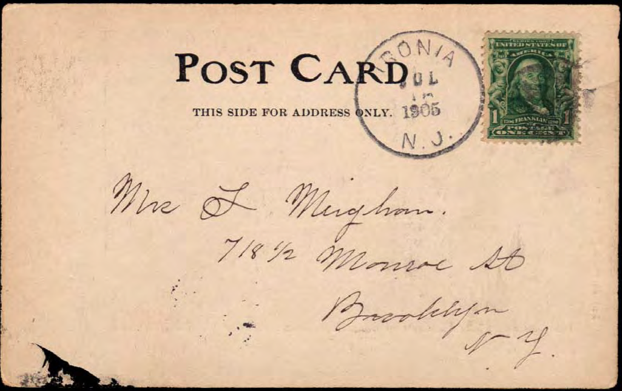 POST CARD
THIS SIDE FOR ADDRESS ONLY.
IRONIA
JUL
1905
N.J.
UNITED STATES OF
AMERICA
FRANKLIN
1 POSTAGE 1
ONE CENT
Mrs L Meighan.
718 1/2 Monroe St
Brooklyn
N.Y.